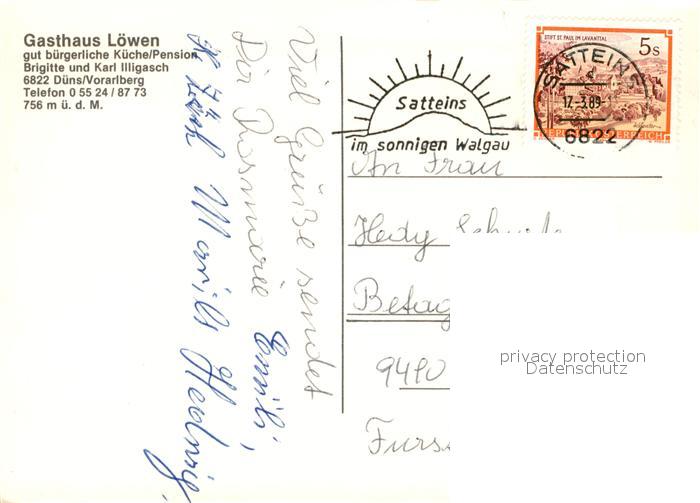 Gasthaus Löwen
gut bürgerliche Küche/Pension
Brigitte und Karl Illigasch
6822 Düns/Vorarlberg
Telefon 0 55 24 / 87 73
756 m ü. d. M.
Viel Grüße sendet
Dir Rosmarie Emili,
Hedwig
Satteins
im sonnigen Walgau
STIFT ST. PAUL IM LAVANTTAL
5 S
SATTEINS
17.-3.89-
6822
An Frau
Hedy
Betag
9490
Furs
privacy protection
Datenschutz